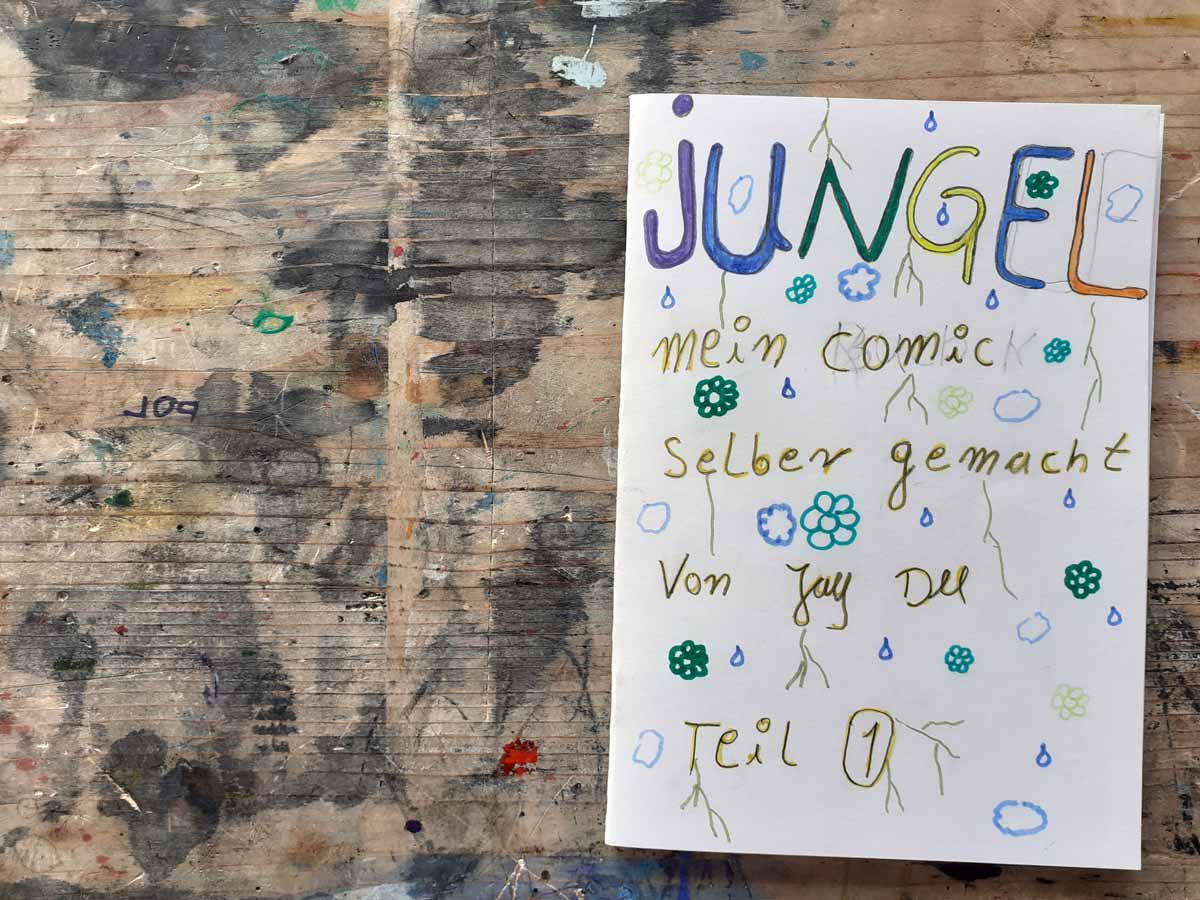 jUNGEL
mein comic
selber gemacht
Von Jay Dee
Teil 1